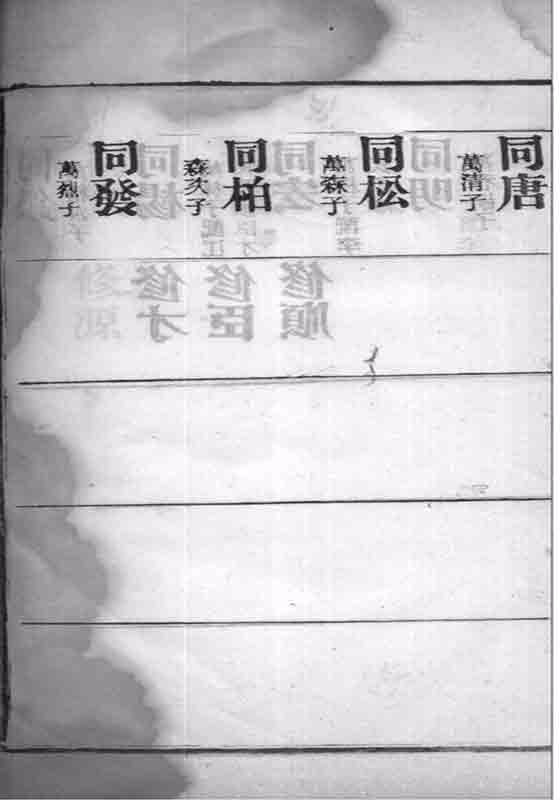 同唐
萬清子
同松
萬森子
同柏
森次子
同發
萬烈子